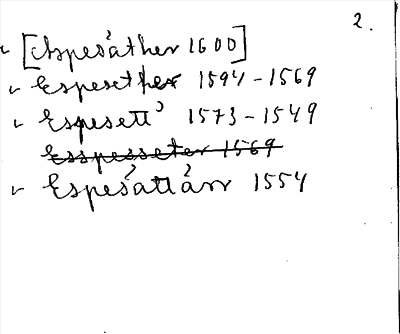 2.
[Aspesáther 1600]
Espesether 1594-1569
Espesett 1573-1549
Esspesseter 1569
Espesáttárr 1554